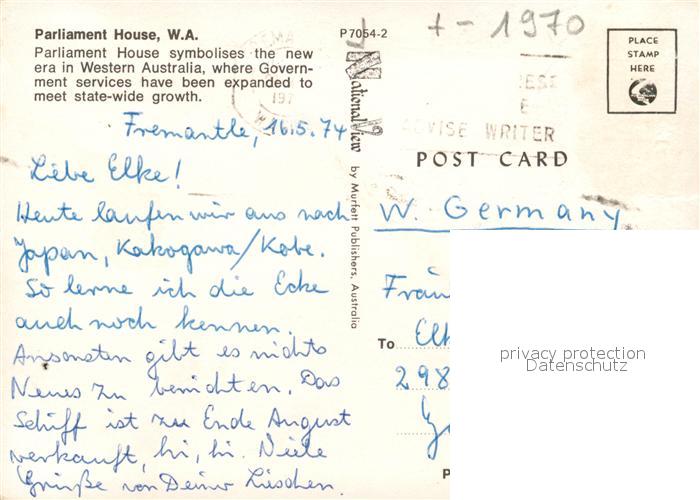 Parliament House, W.A.
Parliament House symbolises the new
era in Western Australia, where Govern-
ment services have been expanded to
meet state-wide growth.
Fremantle, 16.5.74
Liebe Elke!
Heute laufen wir aus nach
Japan, Kakogawa/Kobe.
So lerne ich die Ecke
auch noch kennen.
Ansonsten gibt es nichts
Neues zu berichten. Das
Schiff ist zu Ende August
verkauft, hi, hi. Viele
Grüße von Deinem Lieschen.
P7054-2
National View
by Murfett Publishers, Australia
+ - 1970
PLACE
STAMP
HERE
ADVISE WRITER
POST CARD
W. Germany
To
298
privacy protection
Datenschutz